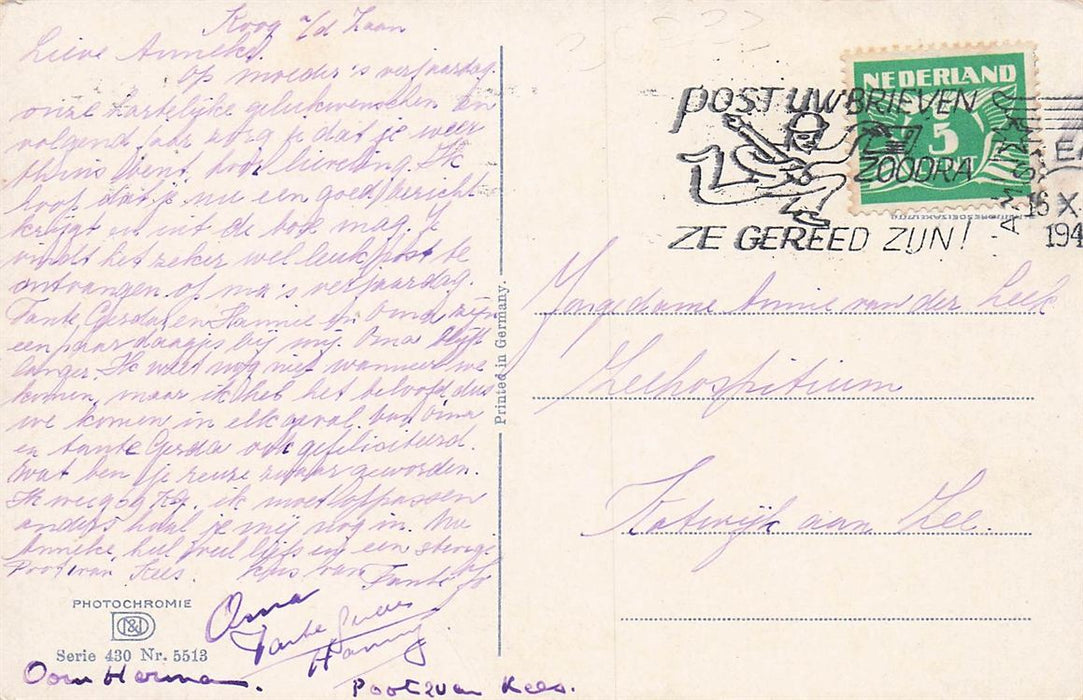 Koog a/d Zaan
Lieve Anneke.
Op moeder's verjaardag
onze hartelijke gelukwenschen en
volgend jaar zorg je dat je weer
thuis bent, hoor lieveling. Ik
hoop dat je nu een goed bericht
krijgt en uit de box mag. Je
vindt het zeker wel leuk post te
ontvangen op ma's verjaardag.
Tante Gerda en Hannie en Oma zijn
een paar daagjes bij mij. Oma blijft
langer. Ik weet nog niet wanneer we
komen, maar ik heb het beloofd dus
we komen in elk geval. Van Oma
en tante Gerda ook gefeliciteerd.
Wat ben je reuze zwaar geworden.
Ik weeg 69 Kg. ik moet oppassen
anders haal je mij nog in. Nu
Anneke, heel veel liefs en een stevige
Poot van Kees. Kus van Tante Jo
Oma
Tante
Hanny
Oom Herman.
Poot van Kees.
PHOTOCHROMIE
Serie 430 Nr. 5513
Printed in Germany.
POST UW BRIEVEN
ZOODRA
ZE GEREED ZIJN!
NEDERLAND
3
CENT
AMSTERDAM
16 X
194
Jongedame Annie van der Leek
Zeehospitium
Katwijk aan Zee.